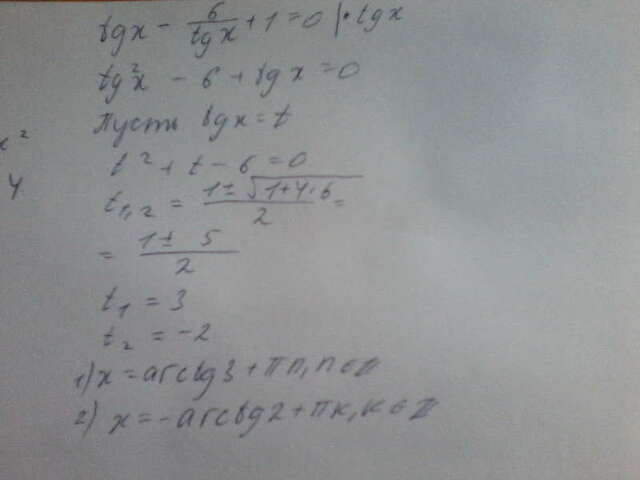 tgx - 6/tgx + 1 = 0 | · tgx
tg²x - 6 + tgx = 0
Пусть tgx = t
x²
t² + t - 6 = 0
4
t₁,₂ = (1 ± √(1+4·6))/2 =
= (1 ± 5)/2
t₁ = 3
t₂ = -2
1) x = arctg3 + πn, n ∈ Z
2) x = -arctg2 + πk, k ∈ Z